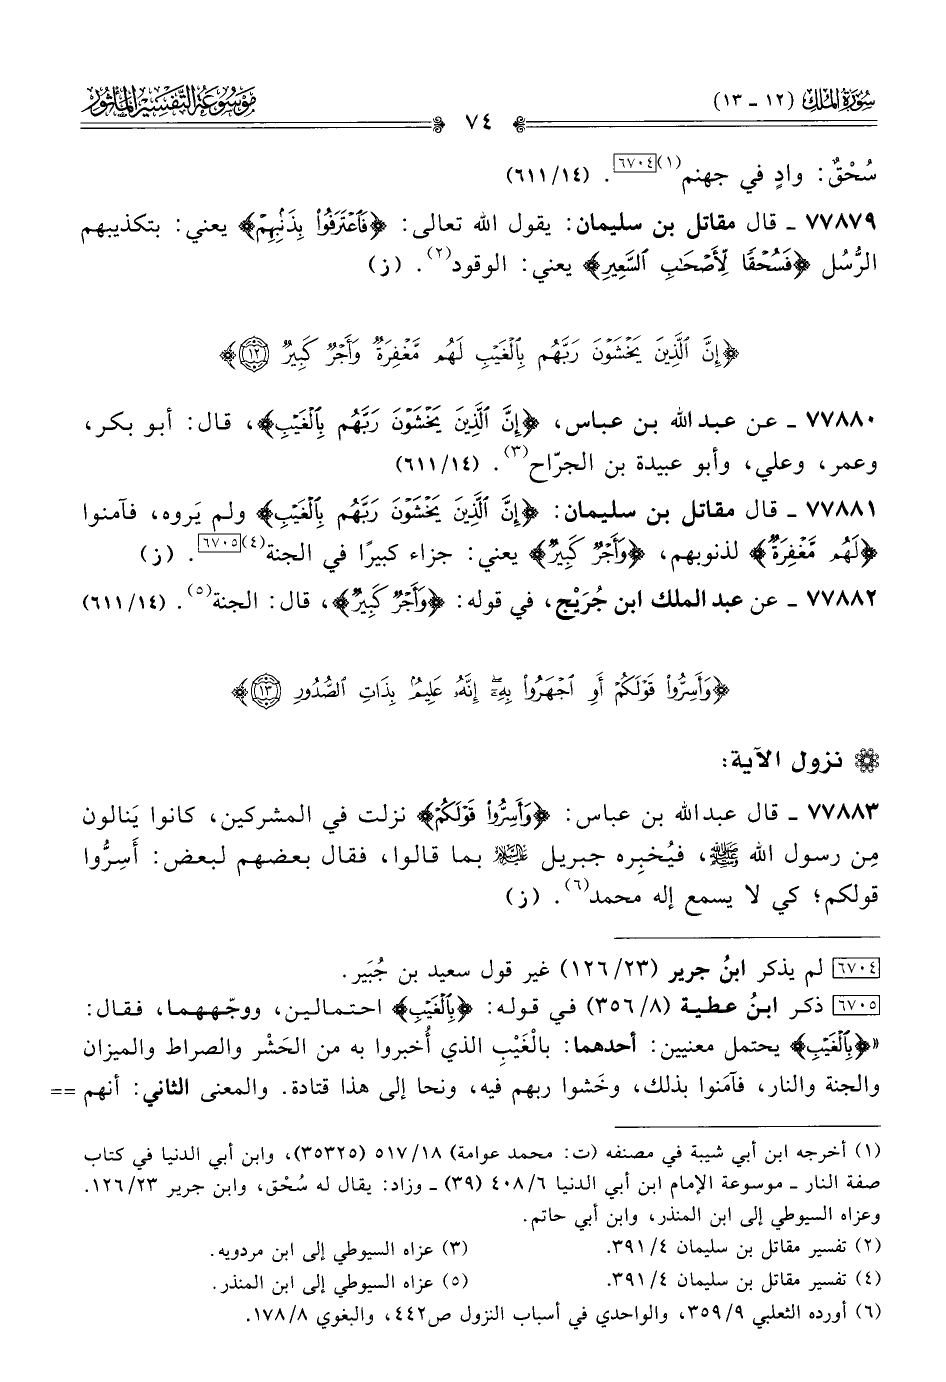 سُورَةُ المُلْكِ (١٢ - ١٣)
٧٤
مَوْسُوعَة التَّفْسِير المَأْثُور
سُحْقٌ: وادٍ في جهنم(١)[٦٧٠٤]. (٦١١/١٤)
٧٧٨٧٩ ـ قال مقاتل بن سليمان: يقول الله تعالى: ﴿فَٱعْتَرَفُواْ بِذَنۢبِهِمْ﴾ يعني: بتكذيبهم
الرُّسُل ﴿فَسُحْقًا لِّأَصْحَٰبِ ٱلسَّعِيرِ﴾ يعني: الوقود(٢). (ز)
﴿إِنَّ ٱلَّذِينَ يَخْشَوْنَ رَبَّهُم بِٱلْغَيْبِ لَهُم مَّغْفِرَةٌ وَأَجْرٌ كَبِيرٌ ١٢﴾
٧٧٨٨٠ ـ عن عبد الله بن عباس، ﴿إِنَّ ٱلَّذِينَ يَخْشَوْنَ رَبَّهُم بِٱلْغَيْبِ﴾، قال: أبو بكر،
وعمر، وعلي، وأبو عبيدة بن الجرّاح(٣). (٦١١/١٤)
٧٧٨٨١ ـ قال مقاتل بن سليمان: ﴿إِنَّ ٱلَّذِينَ يَخْشَوْنَ رَبَّهُم بِٱلْغَيْبِ﴾ ولم يَروه، فآمنوا
﴿لَهُم مَّغْفِرَةٌ﴾ لذنوبهم، ﴿وَأَجْرٌ كَبِيرٌ﴾ يعني: جزاء كبيرًا في الجنة(٤)[٦٧٠٥]. (ز)
٧٧٨٨٢ ـ عن عبد الملك ابن جُرَيْج، في قوله: ﴿وَأَجْرٌ كَبِيرٌ﴾، قال: الجنة(٥). (٦١١/١٤)
﴿وَأَسِرُّواْ قَوْلَكُمْ أَوِ ٱجْهَرُواْ بِهِۦٓ إِنَّهُۥ عَلِيمٌۢ بِذَاتِ ٱلصُّدُورِ ١٣﴾
نزول الآية:
٧٧٨٨٣ ـ قال عبد الله بن عباس: ﴿وَأَسِرُّواْ قَوْلَكُمْ﴾ نزلت في المشركين، كانوا يَنالون
مِن رسول الله ﷺ، فيُخبِره جبريل عليه السلام بما قالوا، فقال بعضهم لبعض: أَسِرُّوا
قولكم؛ كي لا يسمع إله محمد(٦). (ز)
[٦٧٠٤] لم يذكر ابنُ جرير (١٢٦/٢٣) غير قول سعيد بن جُبَير.
[٦٧٠٥] ذكر ابنُ عطية (٣٥٦/٨) في قوله: ﴿بِٱلْغَيْبِ﴾ احتمالين، ووجّههما، فقال:
«﴿بِٱلْغَيْبِ﴾ يحتمل معنيين: أحدهما: بالْغَيْبِ الذي أُخبروا به من الحَشْر والصراط والميزان
والجنة والنار، فآمَنوا بذلك، وخَشوا ربهم فيه، ونحا إلى هذا قتادة. والمعنى الثاني: أنهم ==
(١) أخرجه ابن أبي شيبة في مصنفه (ت: محمد عوامة) ٥١٧/١٨ (٣٥٣٢٥)، وابن أبي الدنيا في كتاب
صفة النار ـ موسوعة الإمام ابن أبي الدنيا ٤٠٨/٦ (٣٩) ـ وزاد: يقال له سُحْق، وابن جرير ١٢٦/٢٣.
وعزاه السيوطي إلى ابن المنذر، وابن أبي حاتم.
(٢) تفسير مقاتل بن سليمان ٣٩١/٤. (٣) عزاه السيوطي إلى ابن مردويه.
(٤) تفسير مقاتل بن سليمان ٣٩١/٤. (٥) عزاه السيوطي إلى ابن المنذر.
(٦) أورده الثعلبي ٣٥٩/٩، والواحدي في أسباب النزول ص٤٤٢، والبغوي ١٧٨/٨.